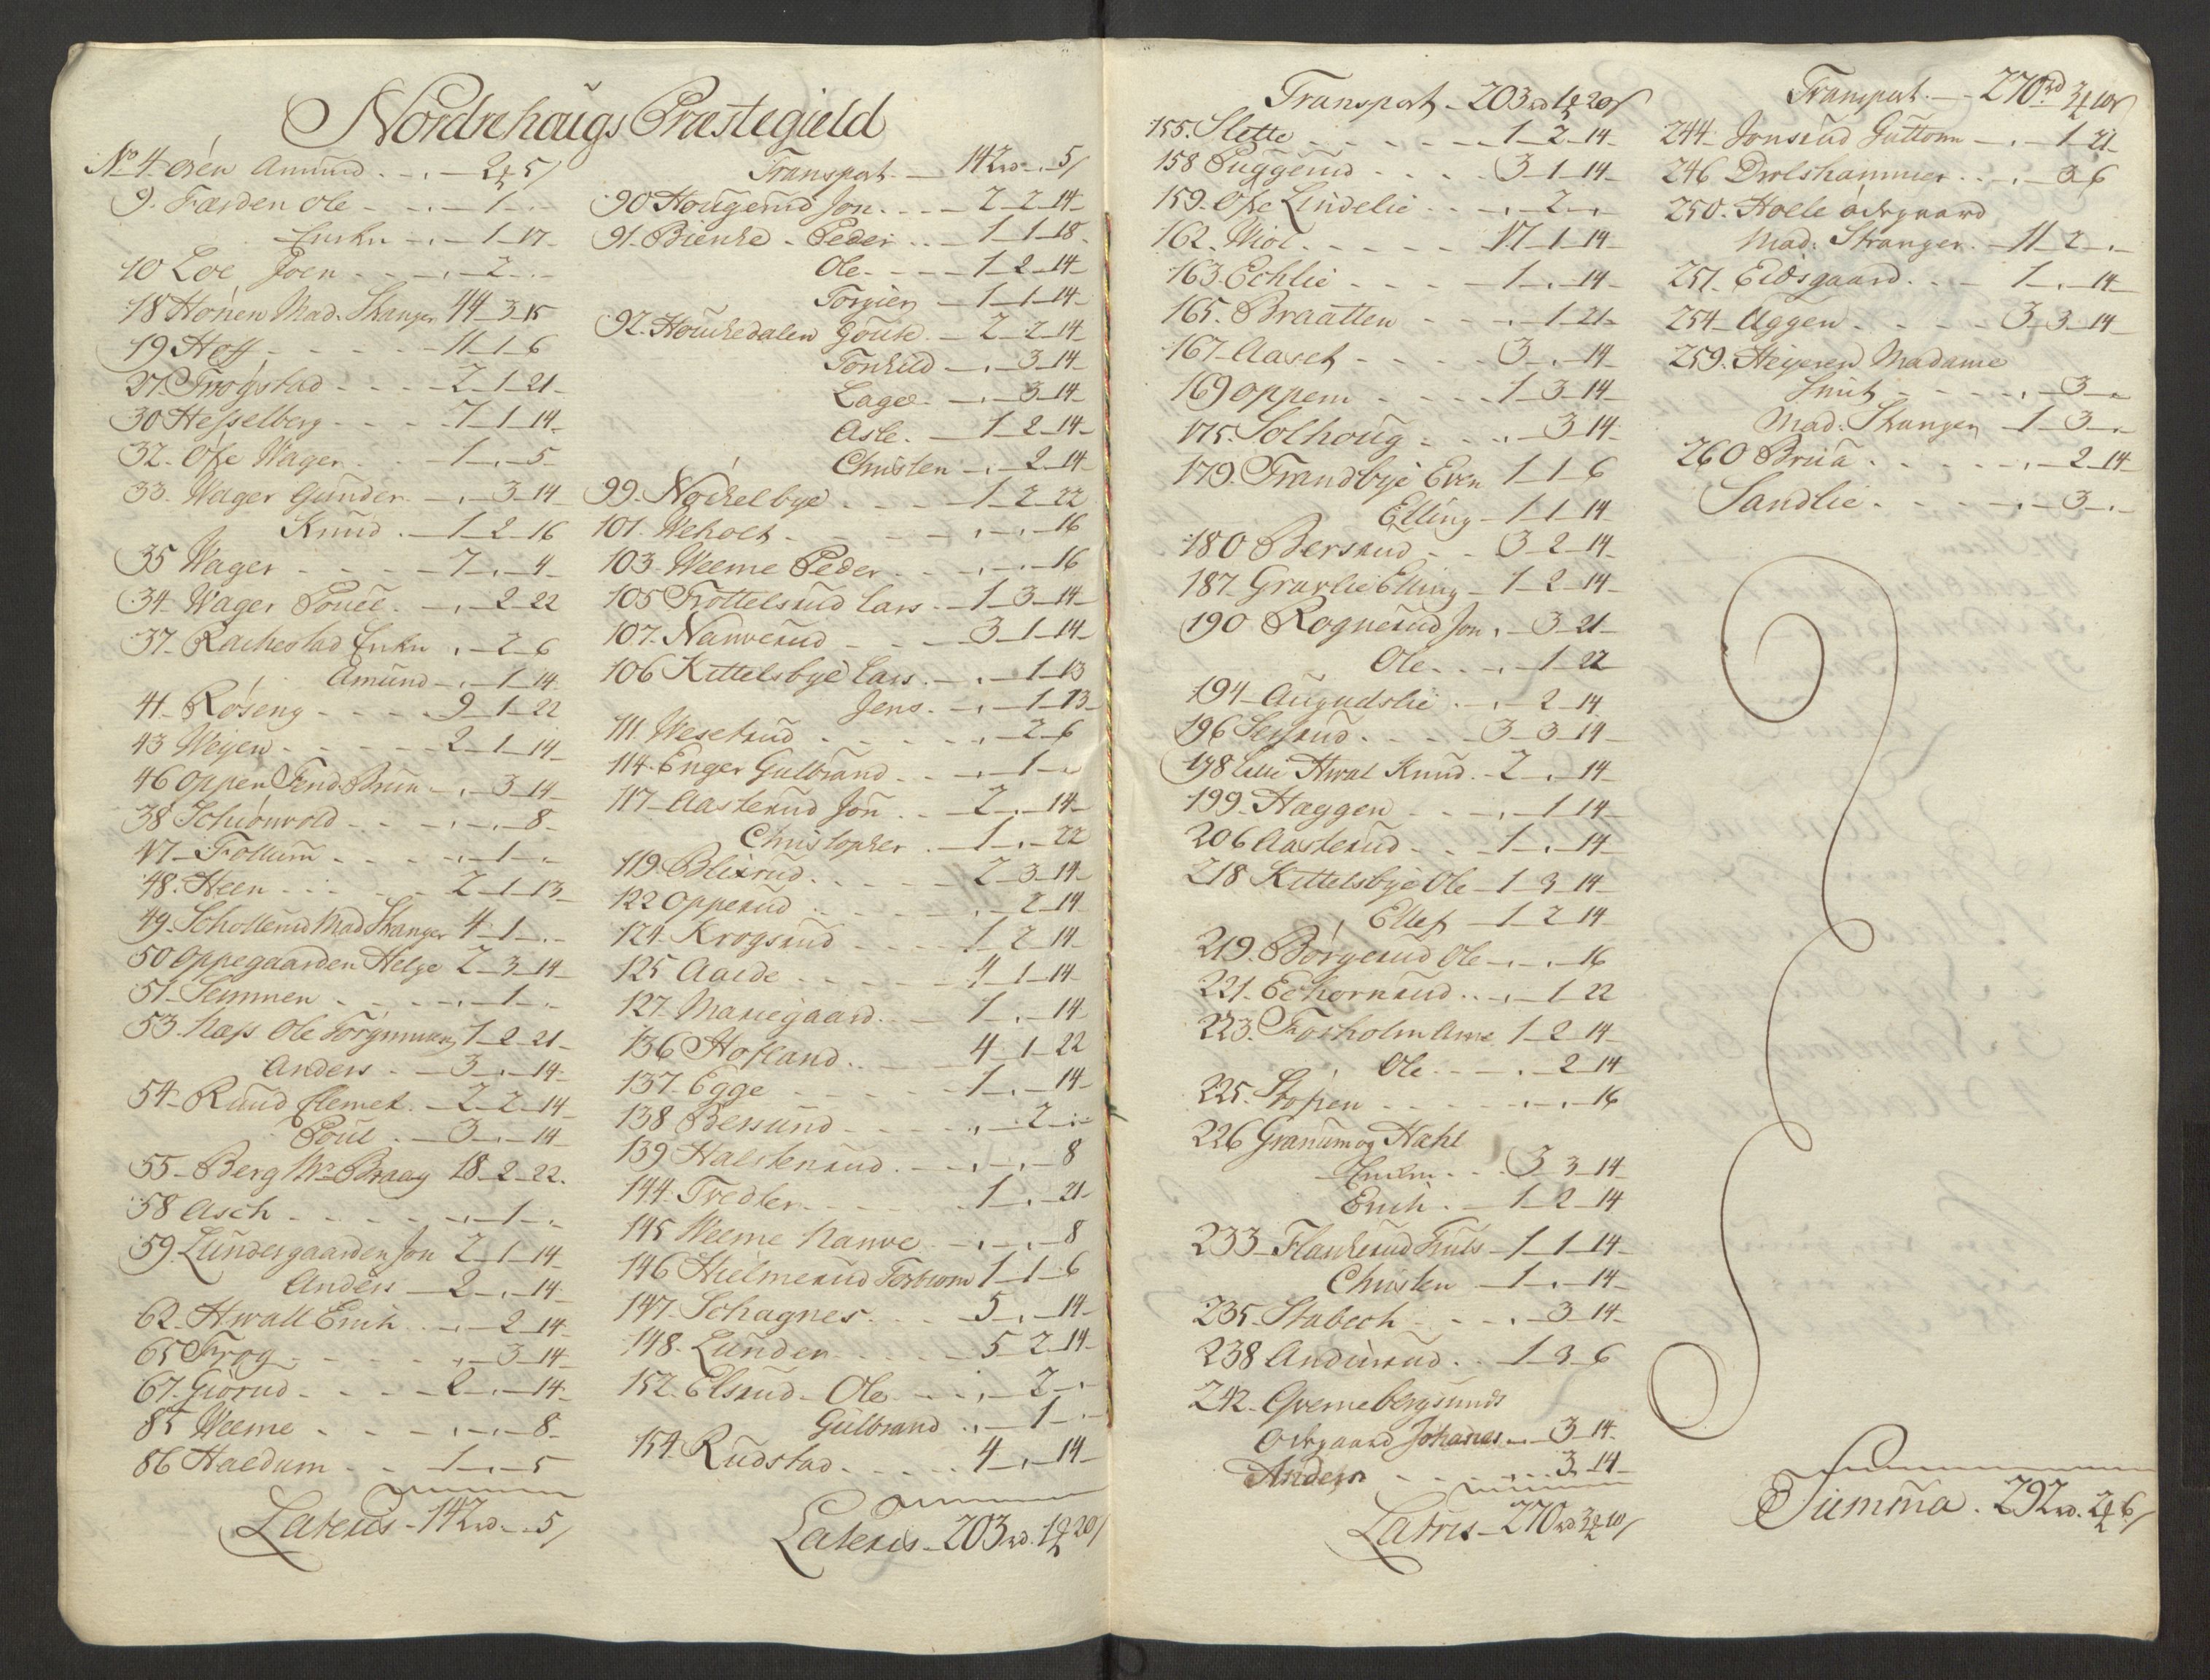 Nordrehougs Præstegield
No 4 øren Amund . - . - 2 - 5
9. Færden Ole - - . - 1 - . -
Enken - . - 1 - 17 -
10 Loe Joen - - . - 2 - . -
18 Hønen Mad. Stranger 44 - 3 - 15
19 Hoff - - - - - 11 - 1 - 6
27. Trøgstad - - - - 2 - 1 - 21 -
30 Hesselberg - - - - 7 - 1 - 14 -
32 - Øfre Wager - - 1 - . - 5 -
33. Wager Gunder - . - 3 - 14
Knud . - 1 - 2 - 16
35 Wager - - - - 7 - . - 4 -
34 - Wager Pouel - . - 2 - 22
37 - Rachestad Enken . - 2 - 6
Amund - . - 1 - 14
41 - Røseng - - - - 9 - 1 - 22
43 Weyen - - - - 2 - 1 - 14
46 Oppen Fend. Bruun - . - 3 - 14 -
38 Schiønvold - - - . - . - 8 -
47 - Follum - - - . - 1 - . -
48. Heen - - - - 2 - 1 - 13 -
49. Schollerud Mad Stranger 4 - 1 - . -
50 Oppegaarden Helge 2 - 3 - 14 -
51 - Semmen - - - . - 1 - . -
53. Næss Ole 1 - 2 - 21 -
Anders - - 3 - . - 14 -
54 - Ruud Clemet . - 2 - 2 - 14 -
Poul . - 3 - . - 14
55 - Berg Mr Braag 18 - 2 - 22.
58 Asch - - - - . - 1 - . -
59. Lundesgaarden Jon 2 - 1 - 14 -
Anders - 2 - . - 14 -
62. Hwall Erich - . - 2 - 14 -
65 Frog - - - - . - 3 - 14 -
67. Giørud - - - - 2 - . - 14 -
85 Weeme - - - . - . - 8 -
86 Haldum - - 1 - . - 5
Lateris - 142 rd - . - 5
Transport - 142 rd - . 5
90 Hougerud Jon . - - 2 - 2 - 14 -
91. Bienke - Peder - - 1 - 1 - 18 -
Ole . - - - 1 - 2 - 14 -
Torgier - 1 - 1 - 14 -
92. Houchedalen Goute - 2 - 2 - 14 -
Torkild - . - 3 - 14 -
Lage - . - 3 - 14 -
Asle . - 1 - 2 - 14 -
Christen - . - 2 - 14 -
99. Nøchelbye - - - 1 - 2 - 22
101. Weholt - - - - . - . - 16
103 - Weeme Peder - - . - . - 16
105 Trottelsrud Lars - - 1 - 3 - 14 -
107. Narverud - - - 3 - 1 - 14 -
106 Kittelsbye Lars - . - 1 - 13
Jens . - . - 1 - 13 -
111. Wesetrud - - - - . - 2 - 6
114. Enger Gulbrand - - . - 1 - .
117 - Aasterud Jon - - 2 - . - 14 -
Christopher . - 1 - . - 22
119. Blixrud . - - - 2 - 3 - 14 -
122 Opperud - - - . - 2 - 14 -
124. Krogsrud - - - 1 - 2 - 14 -
125 Aalde - - - - 4 - 1 - 14 -
127. Mariegaard - - 1 - . - 14
136 Hofland . - - - 4 - 1 - 22
137. Egge - - - - 1 - . - 14 -
138 Bersund - - - . - 2 - . -
139 Halstenrud - - . - . - 8
144. Tvedten - - - 1 - . - 21 -
145 Weeme Narve - . - . - 8
146 Hielmerud Torbiørn 1 - 1 - 6
147. Schagnes - - - 5 - . - 14 -
148. Lunden - - - 5 - 2 - 14 -
152. Elsrud - Ole - - . - 2 - . -
Gulbrand - . - 1 - . -
154. Rudstad - - - 4 - . - 14 -
Lateris - 203 rd . 1 20
Transport - 203 rd 1 20
155. Slette - - - - 1 - 2 - 14 -
158 Puggerud - - - 3 - 1 - 14 -
159. Øfre Lindelie - - . - 2 - .
162. Wiol - - - - 17 - 1 - 14 -
163. Echlie - - - 1 - . - 14 -
165. Braatten - - - . - 1 - 21 -
167 - Aaset - - - 3 - . - 14 -
169 Oppem - - - 1 - 3 - 14 -
175. Solhoug - - - . - 3 - 14 -
179. Trandbye Even 1 - 1 - 6
Elling - 1 - 1 - 14
180 Bersrud - - 3 - 2 - 14 -
187 - Gravlie Elling - 1 - 2 - 14 -
190 Rognerud Jon . - 3 - 21 -
Ole - - . - 1 - 22
194 - Augudslie . - . - 2 - 14
196 Sessrud - - - 3 - 3 - 14 -
198 Lille Hwal Knud - 2 - . - 14 -
199. Haggen - - - . - 1 - 14 -
206 Aasterud - - - 1 - . - 14 -
218 Kittelsbye Ole - 1 - 3 - 14 -
Ellef - 1 - 2 - 14
219. Børgerud Ole - . - . - 16
221. Echornrud - - . - 1 - 22
223. Forholm Arne 1 - 2 - 14 -
Ole - - . - 2 - 14
225. - - - . - . - 16
226 Granum og Hæhl
Enken - - 3 - 3 - 14 -
Erich . - 1 - 2 - 14
233 - Flascherud Truls - 1 - 1 - 14 -
Christen - 1 - . - 14 -
235. Stabech - - - . - 3 - 14 -
238 Andiusrud - - 1 - 3 - 6
242 - Qvernebergsunds
Ødegaard Johanes - . - 3 - 14 -
Anders - - - . - . - 3 - 14 -
Latris - 270 rd 3 10
Transport - - 270 rd 3 10
244 - Jonsrud Guttorm - . - 1 - 21 -
246 Drolshammer - - . - 3 - 6
250 - Holle ødegaard
Mad. Stranger - 11 - 2 - . -
251. Eidsgaard - - - 1 - . - 14 -
254 - Uggen - - - - 3 - 3 - 14 -
259. Heyeren Madame
Smit - - - . - 3 - .
Mad. Stranger 1 - 3 - . -
260 Brua - - - - . - 2 - 14 -
Sandlie - - - - . - 3 - . -
Summa . 292 rd . 2 6